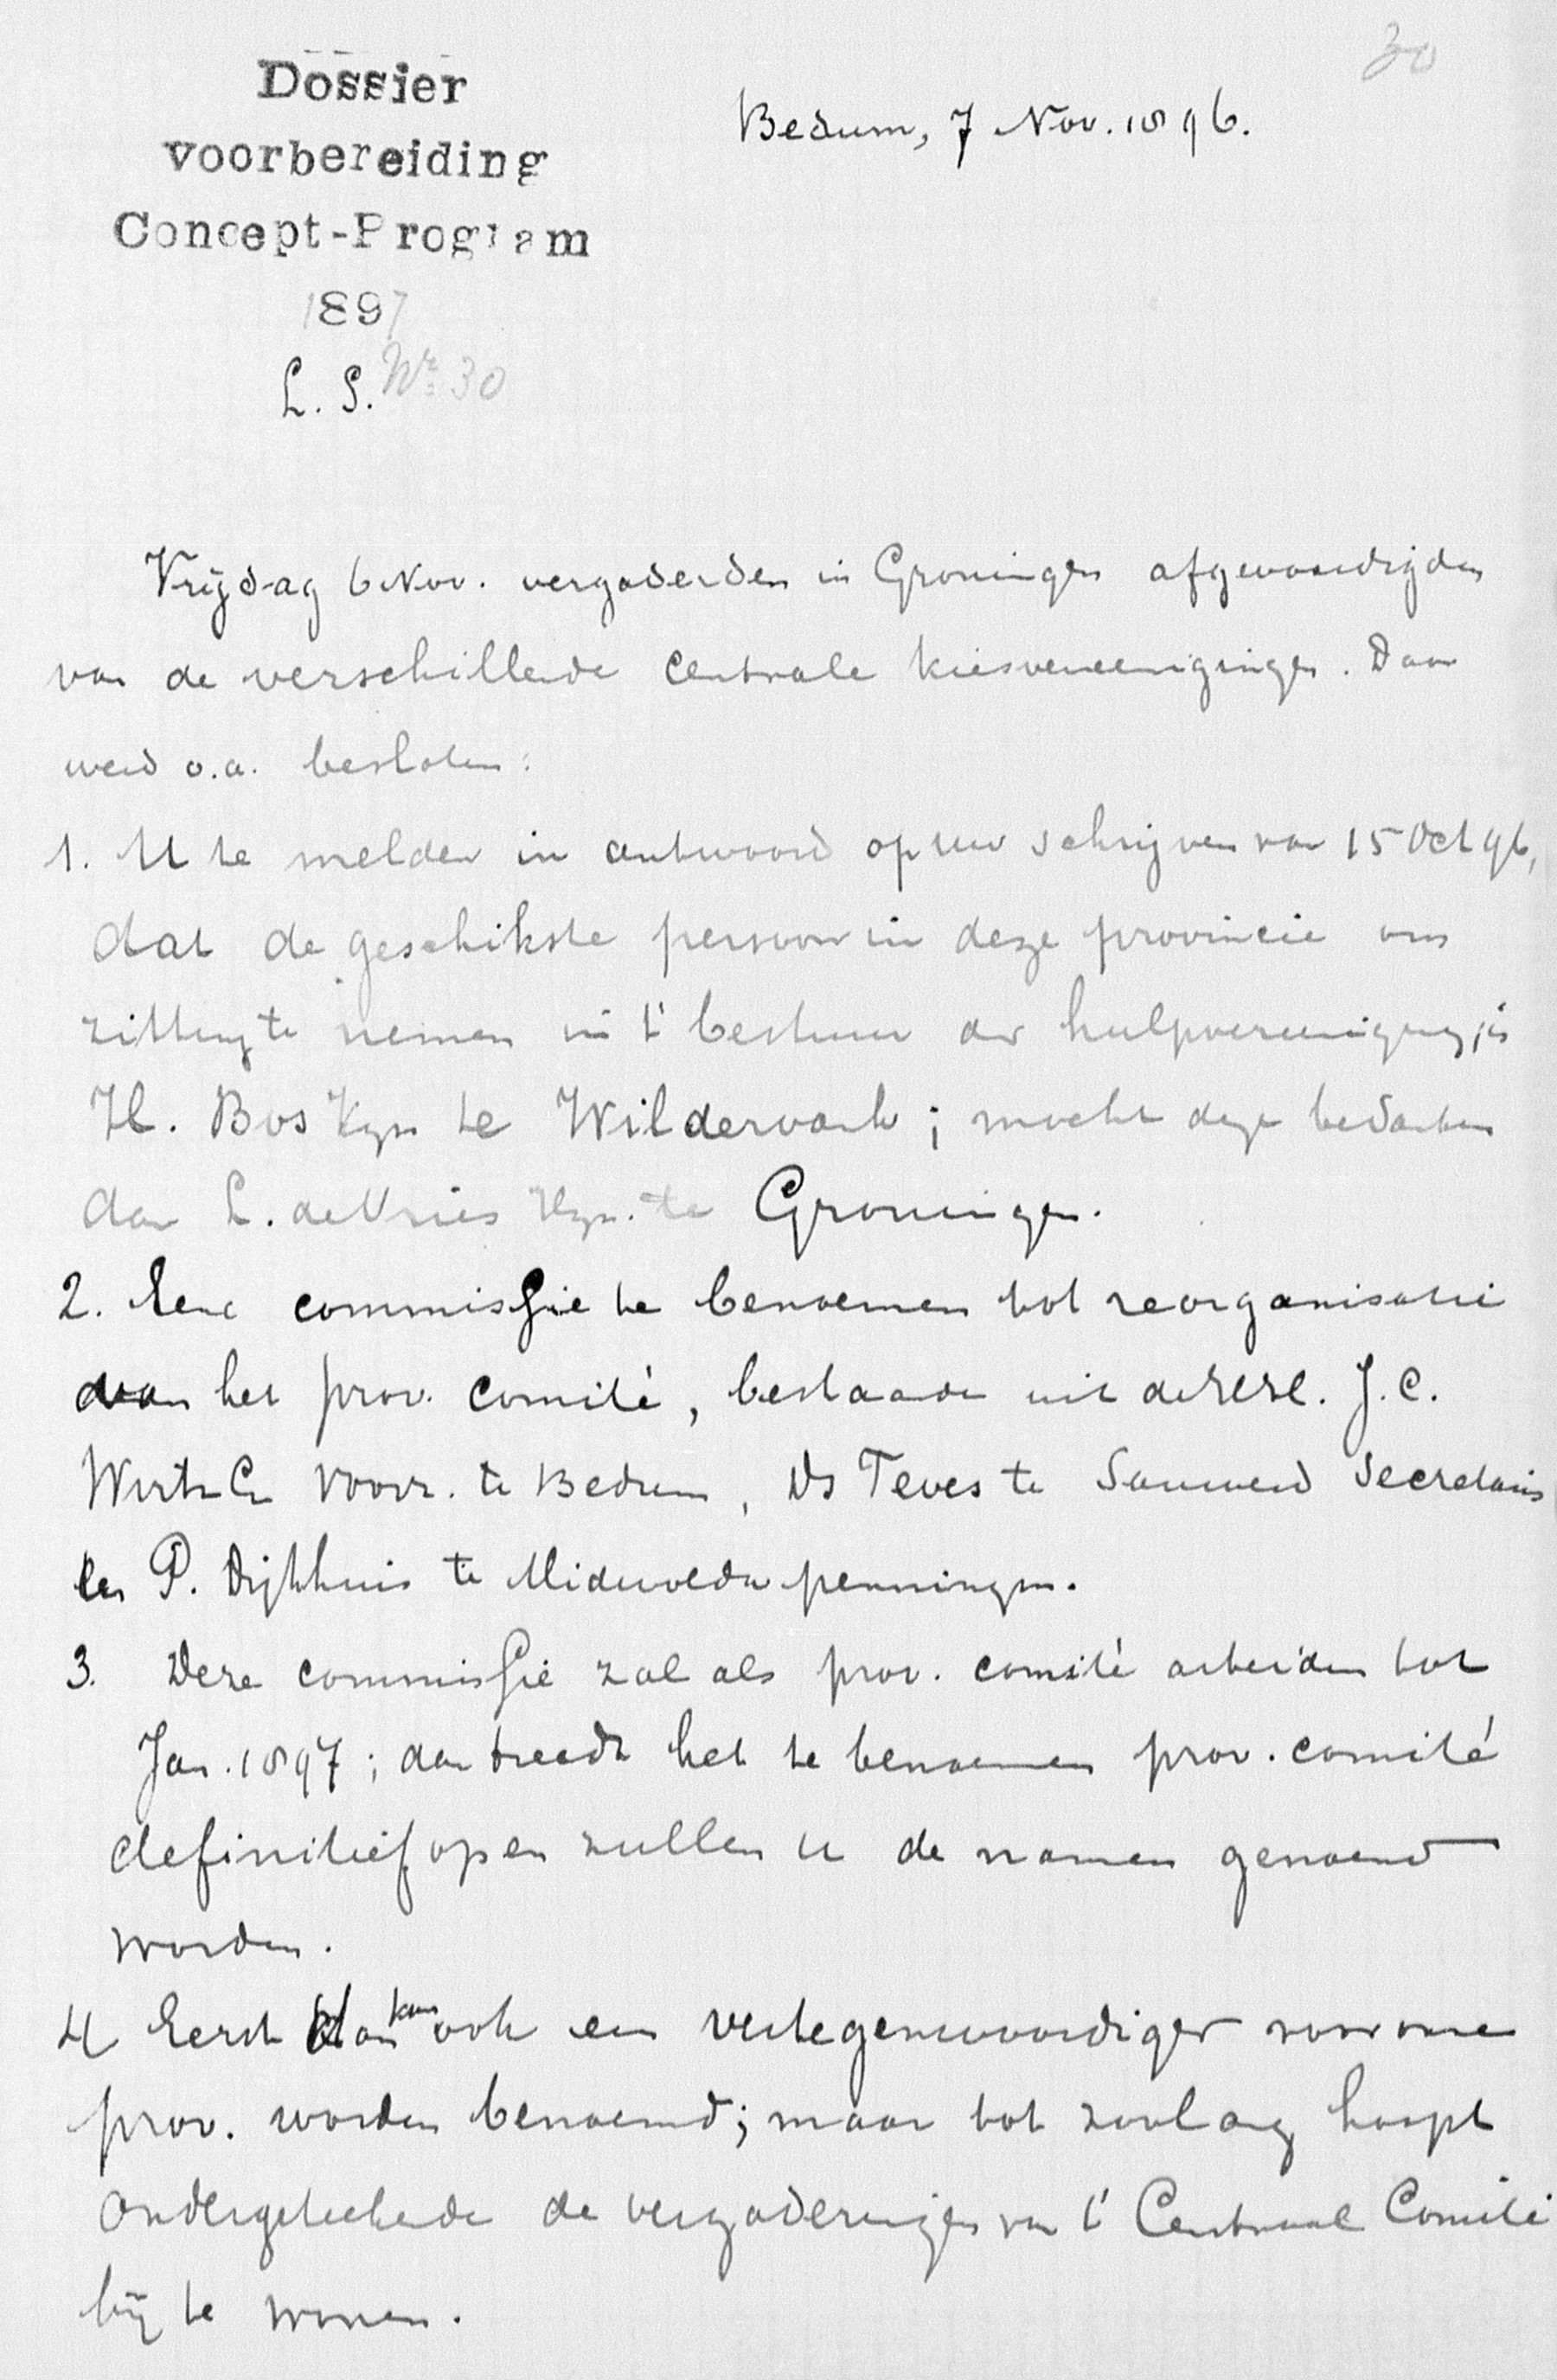 30
Dossier
voorbereiding
Concept-Program
1897
L. S. Nr. 30
Bedum, 7 Nov. 1896.
Vrijdag 6 Nov. vergaderden in Groningen afgevaardigden
van de verschillende Centrale kiesvereenigingen. Daar
werd o.a. besloten:
1. U te melden in antwoord op uw schrijven van 15 Oct 96,
dat de geschikste persoon in deze provincie om
zitting te nemen in 't bestuur der hulpvereeniging, is
H. Bos Kzn te Wildervank; mocht deze bedanken
dan L. de Vries Hzn. te Groningen.
2. Eene commissie te benoemen tot reorganisatie
van het prov. Comité, bestaande uit de HH. J. C.
Wirtz Czn Voorz. te Bedum, Ds Teves te Sauwerd Secretaris
en P. Dijkhuis te Midwolda penningm.
3. Deze commissie zal als prov. comité arbeiden tot
Jan. 1897; dan treedt het te benoemen prov. comité
definitief op en zullen u de namen genoemd
worden.
4 Eerst dan kan ook een vertegenwoordiger voor onze
prov. worden benoemd; maar tot zoolang hoopt
ondergeteekende de vergaderingen van 't Centraal Comité
bij te wonen.